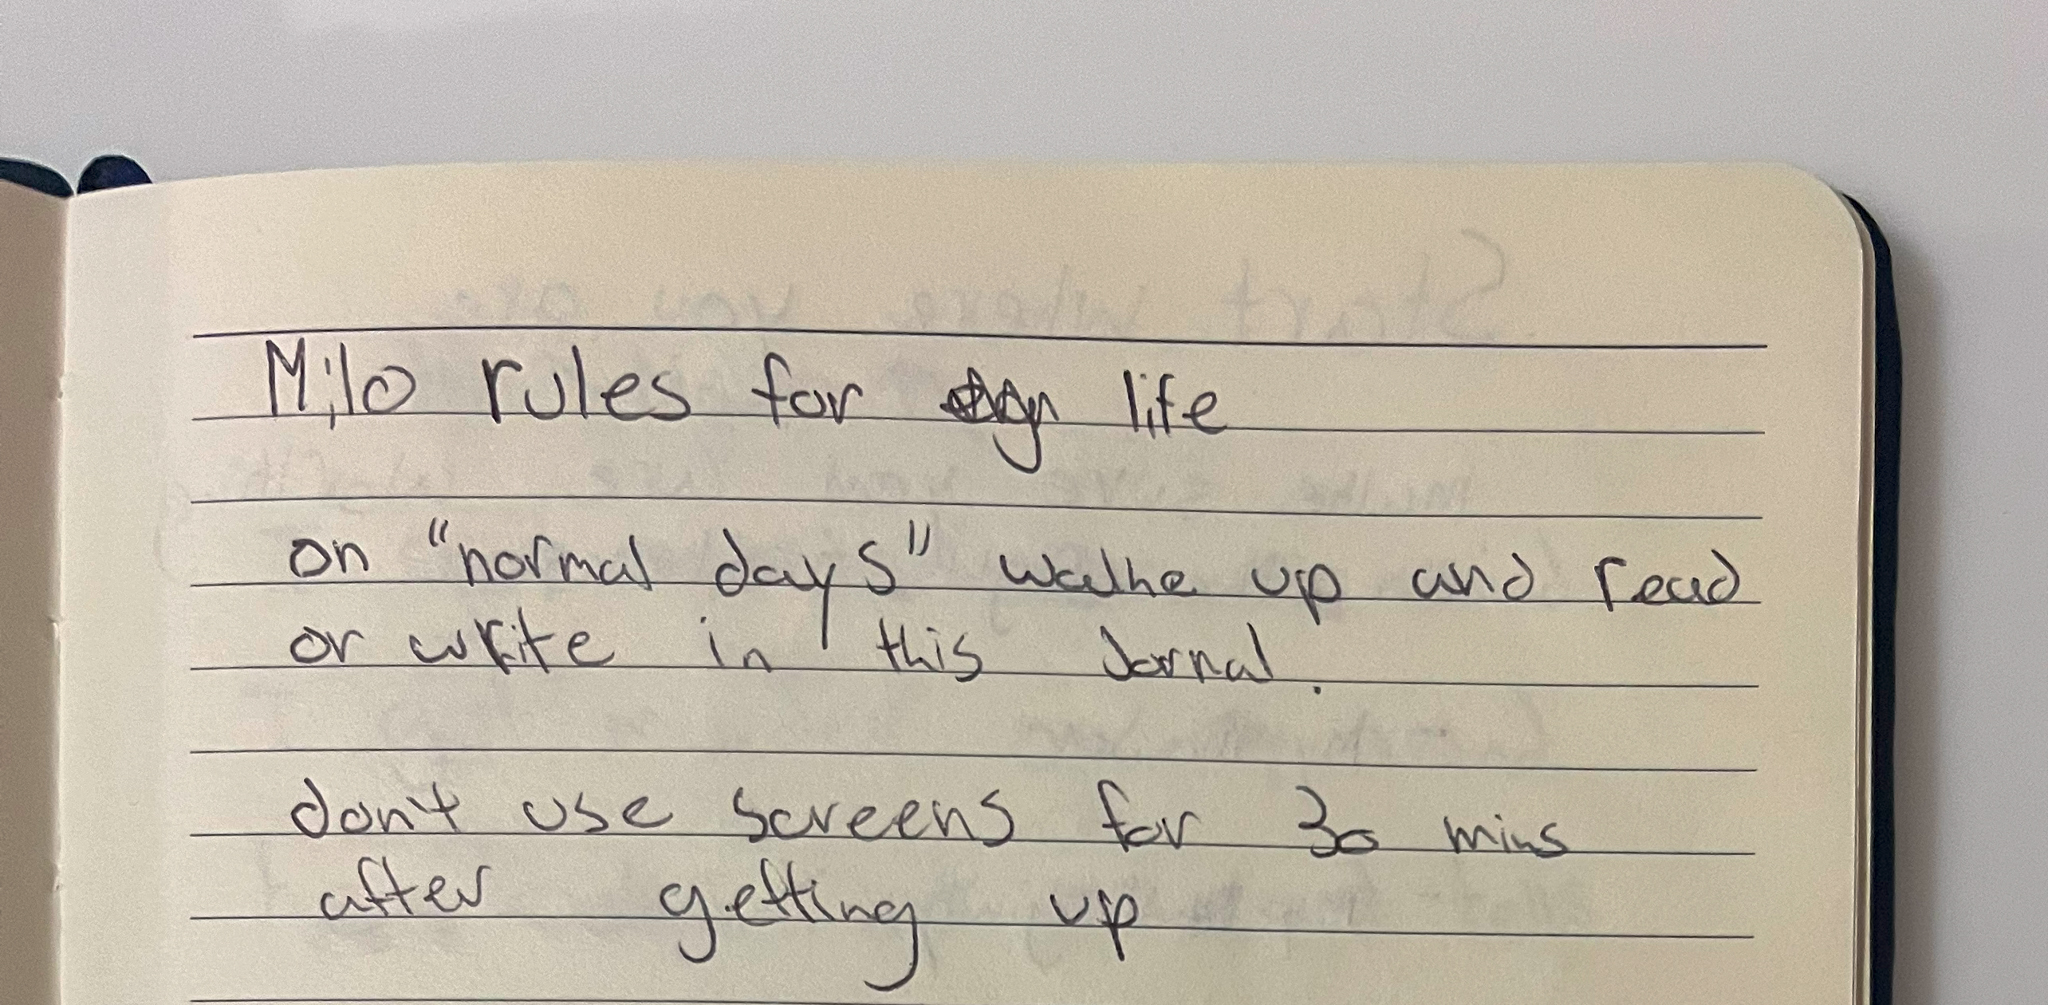 Milo rules for life
on "normal days" walke up and read
or write in this Jornal.
don't use screens for 30 mins
after getting up